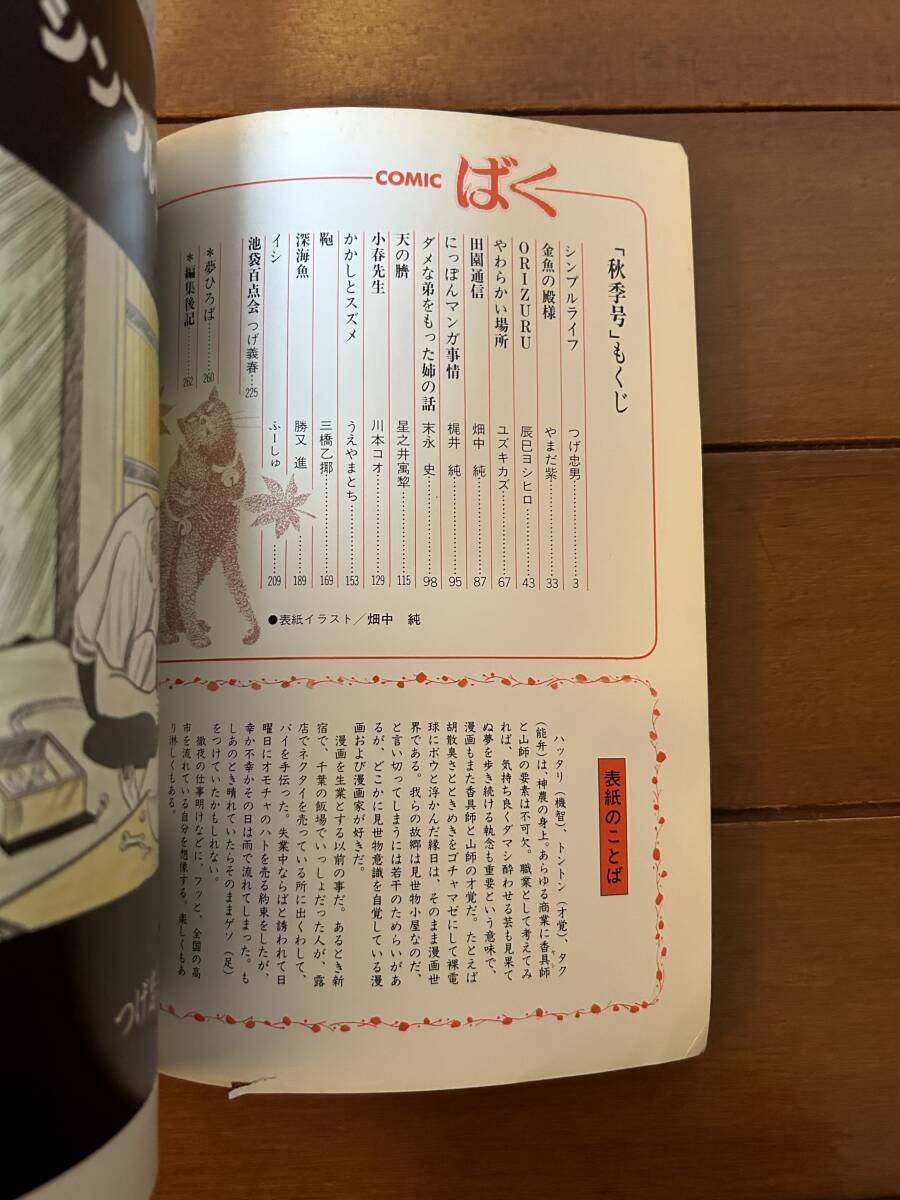 COMIC ばく
「秋季号」もくじ
シンプルライフ つげ忠男………3
金魚の殿様 やまだ紫………33
ORIZURU 辰巳ヨシヒロ………43
やわらかい場所 ユズキカズ………67
田園通信 畑中 純………87
にっぽんマンガ事情 梶井 純………95
ダメな弟をもった姉の話 末永 史………98
天の臍 星之井寓犂………115
小春先生 川本コオ………129
かかしとスズメ うえやまとち………153
鞄 三橋乙揶………169
深海魚 勝又 進………189
イシ ふーしゅ………209
池袋百点会 つげ義春…225
＊夢ひろば………260
＊編集後記………262
●表紙イラスト／畑中 純
表紙のことば
ハッタリ（機智）、トントン（才覚）、タク
（能弁）は、神農の身上。あらゆる商業に香具師
と山師の要素は不可欠。職業として考えてみ
れば、気持ち良くダマシ酔わせる芸も見果て
ぬ夢を歩き続ける執念も重要という意味で、
漫画もまた香具師と山師の才覚だ。たとえば
胡散臭さとときめきをゴチャマゼにして裸電
球にボウと浮かんだ縁日は、そのまま漫画世
界である。我らの故郷は見世物小屋なのだ、
と言い切ってしまうには若干のためらいがあ
るが、どこかに見世物意識を自覚している漫
画および漫画家が好きだ。
漫画を生業とする以前の事だ。あるとき新
宿で、千葉の飯場でいっしょだった人が、露
店でネクタイを売っている所に出くわして、
バイを手伝った。失業中ならばと誘われて日
曜日にオモチャのハトを売る約束をしたが、
幸か不幸かその日は雨で流れてしまった。も
しあのとき晴れていたらそのままゲソ（足）
をつけていたかもしれない。
徹夜の仕事明けなどに、フッと、全国の高
市を流れている自分を想像する。楽しくもあ
り淋しくもある。
シンプル
つげ